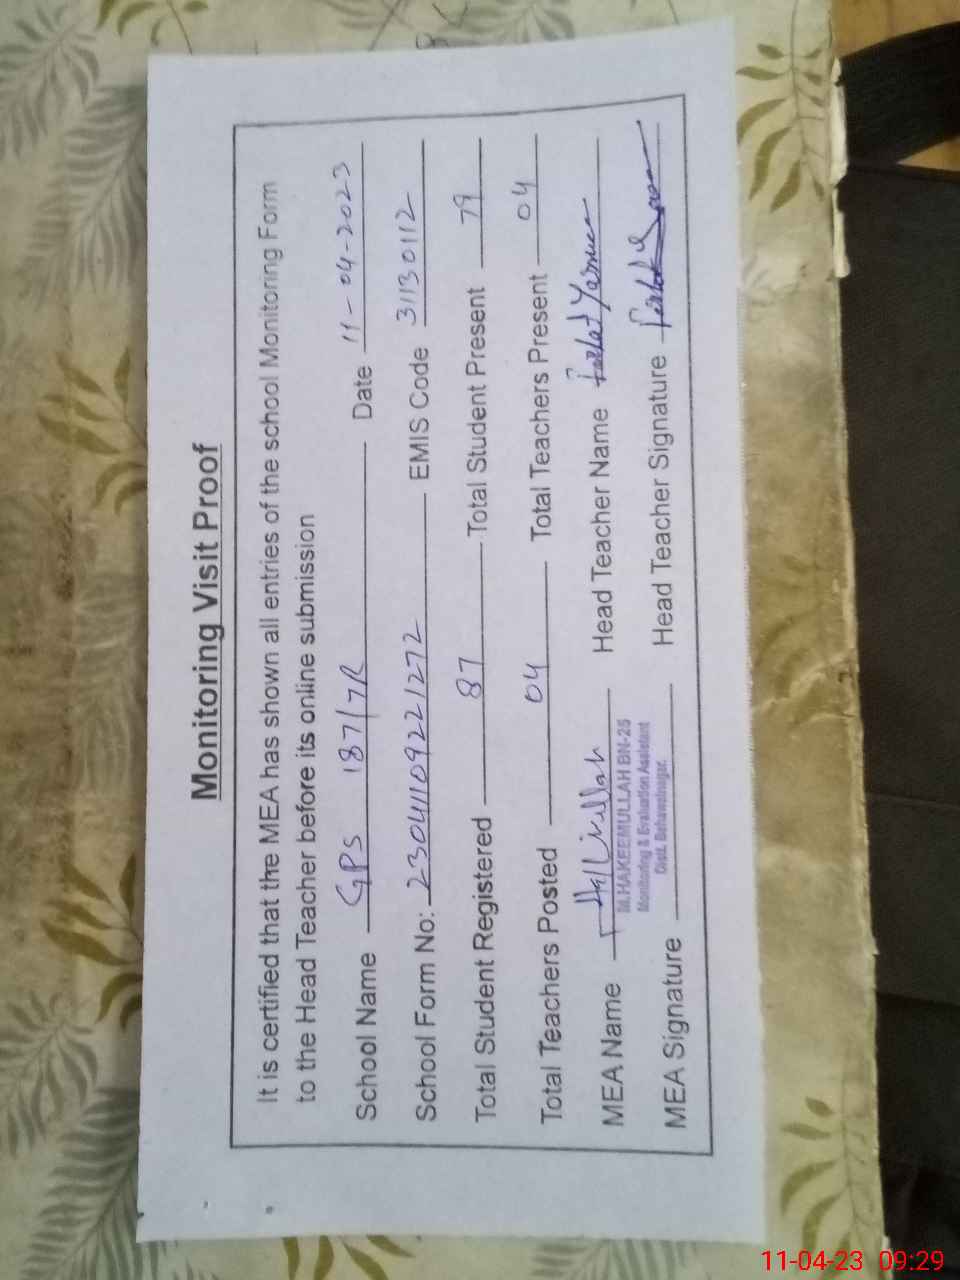 Monitoring Visit Proof
It is certified that the MEA has shown all entries of the school Monitoring Form
to the Head Teacher before its online submission
School Name GPS 187/7R Date 11-04-2023
School Form No: 230411092221272 EMIS Code 31130112
Total Student Registered 87 Total Student Present 79
Total Teachers Posted 04 Total Teachers Present 04
MEA Name Head Teacher Name Yasmeen
M.HAKEEMULLAH BN-25
Monitoring & Evaluation Assistant
Distt. Bahawalnagar.
MEA Signature Head Teacher Signature
11-04-23 09:29